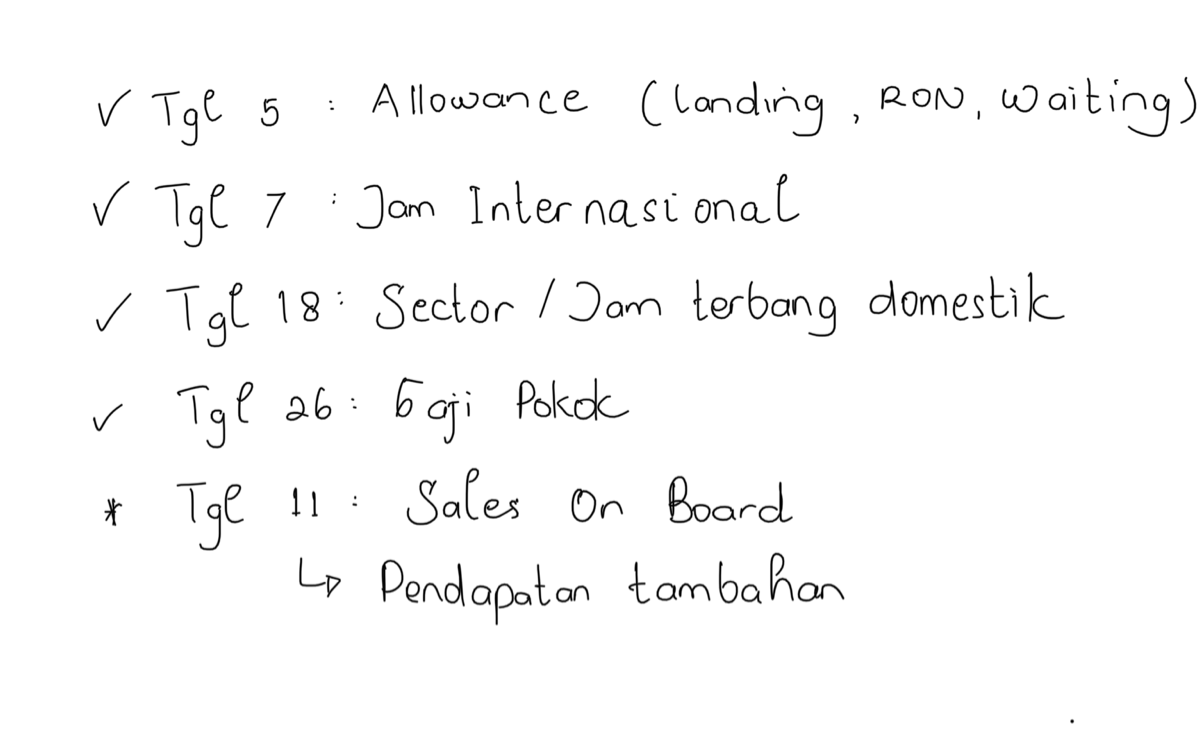 ✓ Tgl 5 : Allowance (landing, RON, Waiting)
✓ Tgl 7 : Jam Internasional
✓ Tgl 18 : Sector / Jam terbang domestik
✓ Tgl 26 : Gaji Pokok
* Tgl 11 : Sales On Board
↳ Pendapatan tambahan